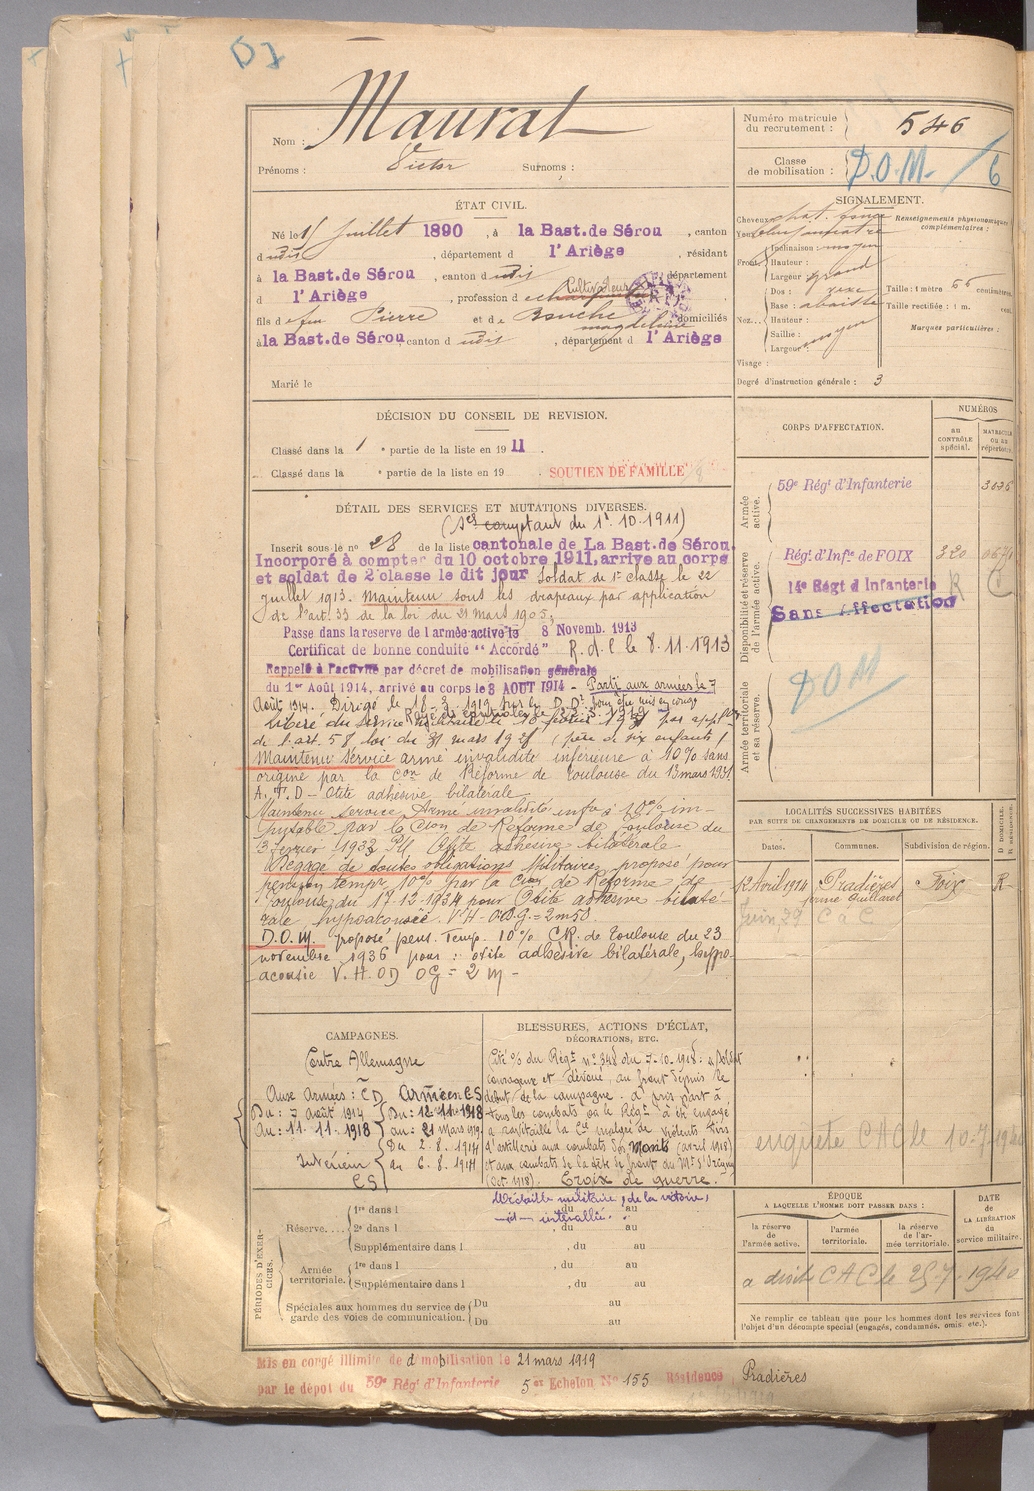 D1
Nom : Maurat
Prénoms : Victor Surnoms :
Numéro matricule du recrutement : 546
Classe de mobilisation : D.O.M. / 6
ÉTAT CIVIL.
Né le 15 Juillet 1890, à la Bast. de Sérou, canton
dudit, département d l'Ariège, résidant
à la Bast. de Sérou, canton dudit, département
d l'Ariège, profession de Cultivateur
fils de feu Pierre et de Bouche magdeleine domiciliés
à la Bast. de Sérou canton dudit, département d l'Ariège
Marié le
SIGNALEMENT.
Cheveux chat. foncé
Yeux
Front Inclinaison moyen
Hauteur :
Largeur : grand
Nez... Dos :
Base : abaissée
Hauteur :
Saillie :
Largeur : moyen
Visage :
Renseignements physionomiques complémentaires :
Taille : 1 mètre 66 centimètres
Taille rectifiée : 1 m. cent.
Marques particulières :
Degré d'instruction générale : 3
DÉCISION DU CONSEIL DE REVISION.
Classé dans la 1e partie de la liste en 1911
Classé dans la e partie de la liste en 19 .
SOUTIEN DE FAMILLE
DÉTAIL DES SERVICES ET MUTATIONS DIVERSES.
comptant du 1r. 10. 1911)
Inscrit sous le no 28 de la liste cantonale de La Bast. de Sérou.
Incorporé à compter du 10 octobre 1911, arrivé au corps
et soldat de 2e classe le dit jour Soldat de 1re classe le 22
Juillet 1913. Maintenu sous les drapeaux par application
de l'art. 33 de la loi du 21 mars 1905.
Passe dans la réserve de l'armée active le 8 Novemb. 1913
Certificat de bonne conduite "Accordé" R.d.l le 8.11.1913
Rappelé à l'activité par décret de mobilisation générale
du 1er Août 1914, arrivé au corps le 3 AOUT 1914 - Parti aux armées le 7
Août 1914. Dirigé le 18-3-1919 sur le D.D. pour être mis en congé
libéré du service militaire le 10 février 1931 par appl.on
de l'art. 58 loi du 31 mars 1928 (père de six enfants)
Maintenu Service armé invalidité inférieure à 10% sans
origine par la Con de Réforme de Toulouse du 13 mars 1931
A.T.D - Otite adhésive bilatérale
Maintenu Service Armé invalidité infre à 10% im-
putable par la Cion de Reforme de Toulouse du
3 février 1933 PU Otite adhésive bilatérale
Dégagé de toutes obligations Militaires, proposé pour
pension tempre 10% par la Cion de Réforme de
Toulouse du 17-12-1934 pour Otite adhésive bilaté-
rale hypoacousie. V.H-OD.G.=2m50.
D.O.M. proposé pens. Temp. 10% CR. de Toulouse du 23
novembre 1936 pour : otite adhésive bilatérale, hypo-
acousie V.H. OD OG = 2 m -
CORPS D'AFFECTATION.
NUMÉROS
au contrôle spécial.
matricule ou au répertoire.
Armée active.
59e Régt d'Infanterie
Disponibilité et réserve de l'armée active.
Régt d'Infie de FOIX 320
14e Régt d'Infanterie R C
Sans Affectation
Armée territoriale et sa réserve.
DOM
LOCALITÉS SUCCESSIVES HABITÉES
PAR SUITE DE CHANGEMENTS DE DOMICILE OU DE RÉSIDENCE.
Dates. Communes. Subdivision de région. D DOMICILE. R RÉSIDENCE.
12 Avril 1914 Pradières Foix R
ferme Guillaret
Juin, 27 C a C
enquête CAC le 10-7-1940
CAMPAGNES.
Contre Allemagne
Aux Armées : CD Armée en CS
Du : 7 Août 1914 Du : 12-11-1918
au : 11.11.1918 au : 21 mars 1919
Intérieur Du 2-8-1914
CS au 6-8-1914
BLESSURES, ACTIONS D'ÉCLAT,
DÉCORATIONS, ETC.
Cité % du Régt no 348 du 7-10-1918 : "Soldat
courageux et dévoué, au front depuis le
début de la campagne. a pris part à
tous les combats où le Régt a été engagé
a ravitaillé la Cie malgré de violents tirs
d'artillerie aux combats des Monts (avril 1918)
et aux combats de la tête de pont du
(Oct. 1918). Croix de guerre.
Médaille militaire, de la victoire,
-id- interalliée.
PÉRIODES D'EXERCICES.
Réserve.... 1re dans l , du au
2e dans l , du au
Supplémentaire dans l , du au
Armée territoriale. 1re dans l , du au
Supplémentaire dans l , du au
Spéciales aux hommes du service de garde des voies de communication. Du au
Du au
ÉPOQUE
A LAQUELLE L'HOMME DOIT PASSER DANS :
la réserve de l'armée active.
l'armée territoriale.
la réserve de l'armée territoriale.
DATE DE LA LIBÉRATION du service militaire.
a droit CAC le 25-7-1940
Ne remplir ce tableau que pour les hommes dont les services font l'objet d'un décompte spécial (engagés, condamnés, omis, etc.).
Mis en congé illimité de démobilisation le 21 mars 1919
par le dépôt du 59e Régt d'Infanterie 5e Echelon No 155 Résidence Pradières